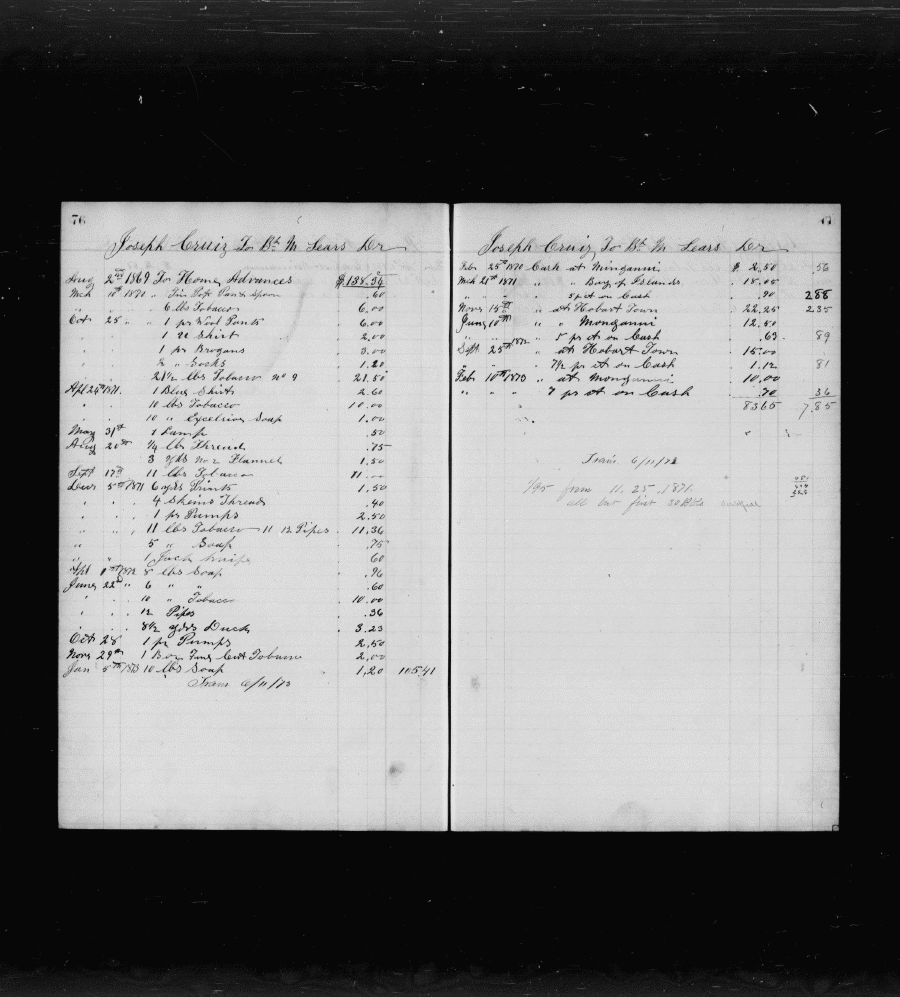 76
Joseph Cruiz To Bk M Sears Dr
Aug 2nd 1869 To Home Advances $ 138.34
Mch 10th 1871 " Tin Pot Pan & Spoon .60
6 lbs Tobacco 6.00
Oct 25 " " 1 pr Wool Pants 6.00
1 Shirt 2.00
1 pr Brogans 3.00
2 " Socks 1.20
21 1/2 lbs Tobacco No 9 21.50
Apl 24th 1871 1 Blue Shirt 2.60
10 lbs Tobacco 10.00
10 " Excelsior Soap 1.00
May 31st 1 Lamp .50
Aug 20th 1/4 lbs Thread .75
3 yds No 2 Flannel 1.50
Sept 17th 11 lbs Tobacco 11.00
Decr 5th 1871 6 yds Prints 1.50
4 Skeins Threads .40
1 pr Pumps 2.50
11 lbs Tobacco 11 12 Pipes 11.36
5 " Soap .75
1 Jack Knife 60
1872 8 lbs Soap .96
June 22d " 6 " " .60
10 " Tobacco 10.00
12 Pipes .36
8 1/2 yds Duck 3.23
Oct 28 1 pr Pumps 2.50
Novr 29th 1 Box Fine Cut Tobacco 2.00
Jan 5th 1873 10 lbs Soap 1.20 105.41
Trans 6/11/73
Joseph Cruiz To Bk M Sears Dr
Febr 25th 1870 Cash at Monganni $ 2.50 56
Mch 21st 1871 " " Bay of Islands 18.05
" " " 5 pr ct on Cash .90 288
Novr 15th " at Hobart Town 22.25 235
June 10th " " Monganni 12.50
1872 5 pr ct on Cash .63 89
Sept 25th " at Hobart Town 15.00
7 1/2 pr ct on Cash 1.12 81
Febr 10th 1873 " at Monganni 10.00
" " " 7 pr ct on Cash .70 36
83 65 7 85
Trans 6/11/73
1/95 from 11. 25. 1871.
all but first 30 Bbls